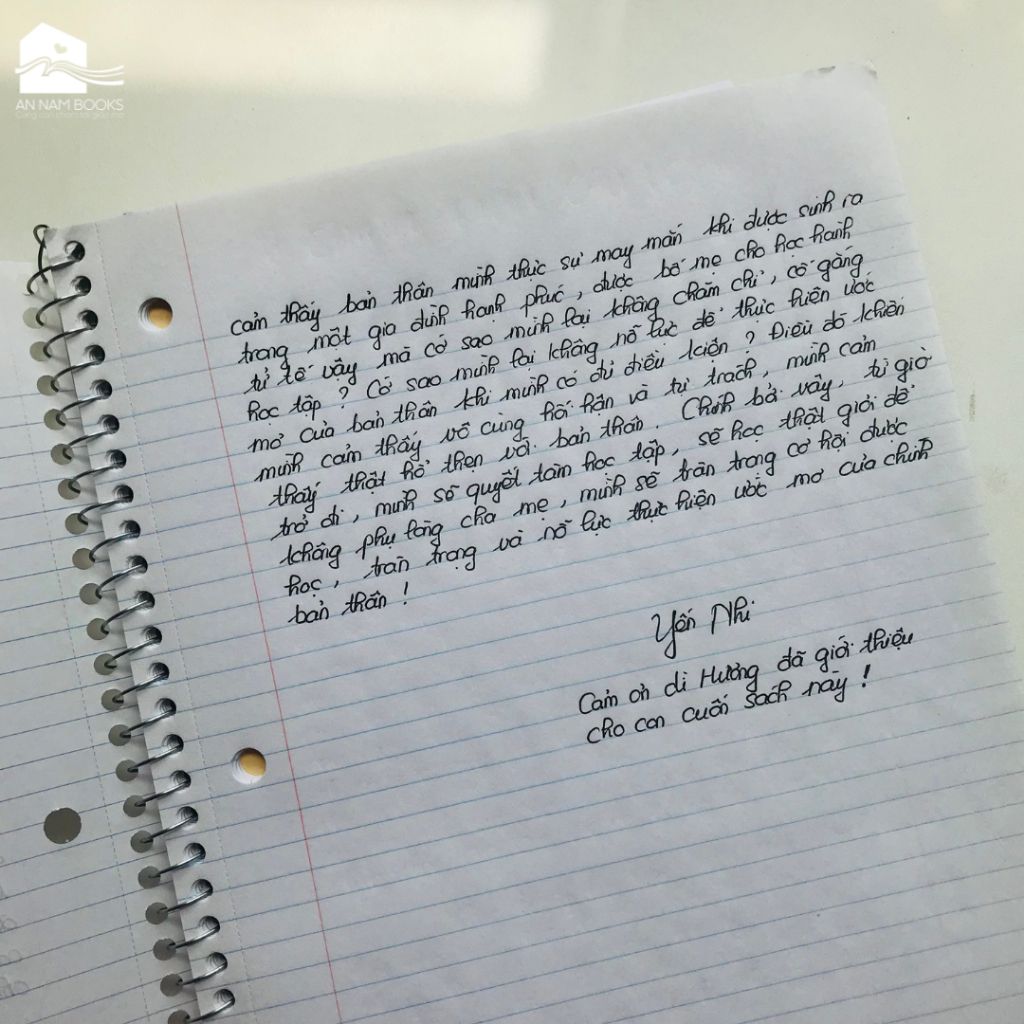 AN NAM BOOKS
cảm thấy bản thân mình thực sự may mắn khi được sinh ra
trong một gia đình hạnh phúc, được bố mẹ cho học hành
tử tế vậy mà cớ sao mình lại không chăm chỉ, cố gắng
học tập ? Cớ sao mình lại không nỗ lực để thực hiện ước
mơ của bản thân khi mình có đủ điều kiện ? Điều đó khiến
mình cảm thấy vô cùng hối hận và tự trách, mình cảm
thấy thật hổ thẹn với bản thân. Chính bởi vậy, từ giờ
trở đi, mình sẽ quyết tâm học tập, sẽ học thật giỏi để
không phụ lòng cha mẹ, mình sẽ trân trọng cơ hội được
học, trân trọng và nỗ lực thực hiện ước mơ của chính
bản thân !
Yến Nhi
Cảm ơn dì Hương đã giới thiệu
cho con cuốn sách này !